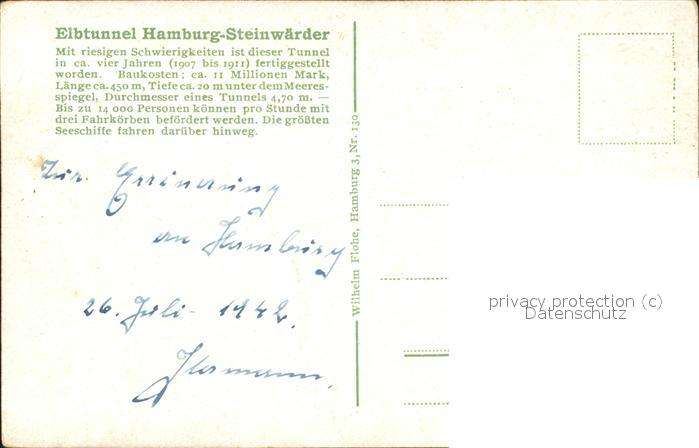 Elbtunnel Hamburg-Steinwärder
Mit riesigen Schwierigkeiten ist dieser Tunnel
in ca. vier Jahren (1907 bis 1911) fertiggestellt
worden. Baukosten: ca. 11 Millionen Mark,
Länge ca. 450 m, Tiefe ca. 20 m unter dem Meeres-
spiegel, Durchmesser eines Tunnels 4,70 m. —
Bis zu 14 000 Personen können pro Stunde mit
drei Fahrkörben befördert werden. Die größten
Seeschiffe fahren darüber hinweg.
Zur Errinerung
an Hamburg
26. Juli - 1942.
Hermann.
Wilhelm Flohe, Hamburg 3, Nr. 130
privacy protection (c)
Datenschutz